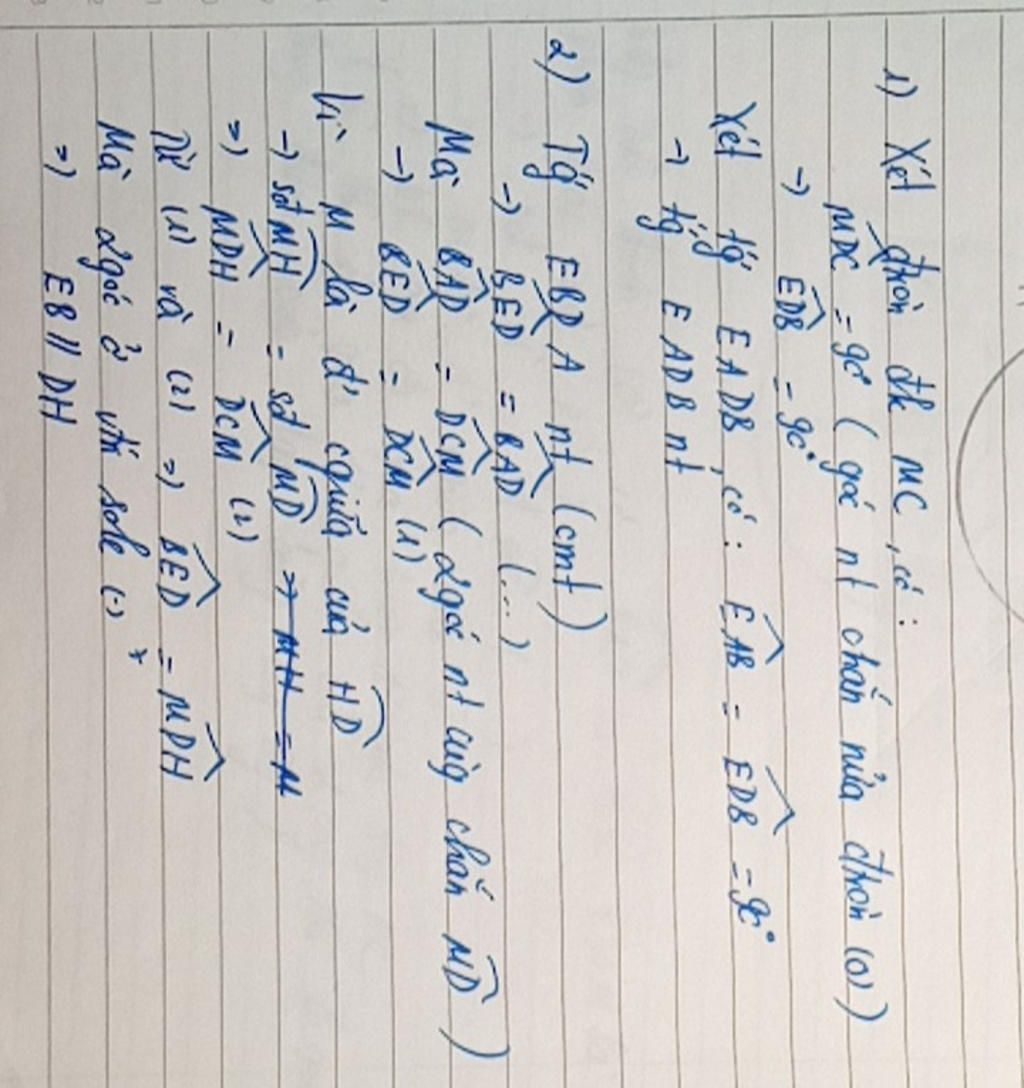 1) Xét đtròn đk MC, có:
MDC = 90° (góc nt chắn nửa đtròn (O))
→ EDB = 90°
Xét tg EADB, có: EAB = EDB = 90°
→ tg EADB nt
2) Tg EBDA nt (cmt)
→ BED = BAD (...)
Mà BAD = DCM (2góc nt cùng chắn MD)
→ BED = DCM (1)
Vì M là đ' cgiữa của HD
→ sđ MH = sđ MD
=> MDH = DCM (2)
Từ (1) và (2) => BED = MDH
Mà 2góc ở vtrí sole (.)
=> EB // DH